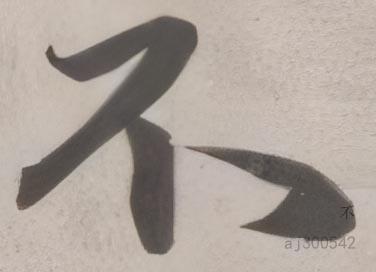 不
不
aj300542